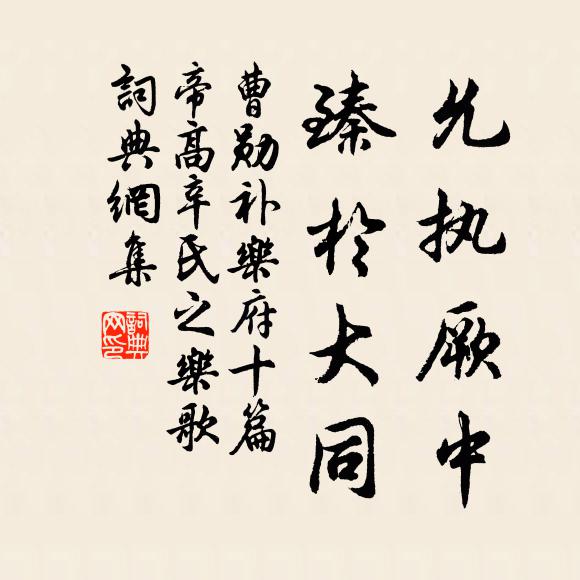 允执厥中
臻於大同
曹勋补樂府十篇
帝高辛氏之樂歌
詞典網集
詞典网印